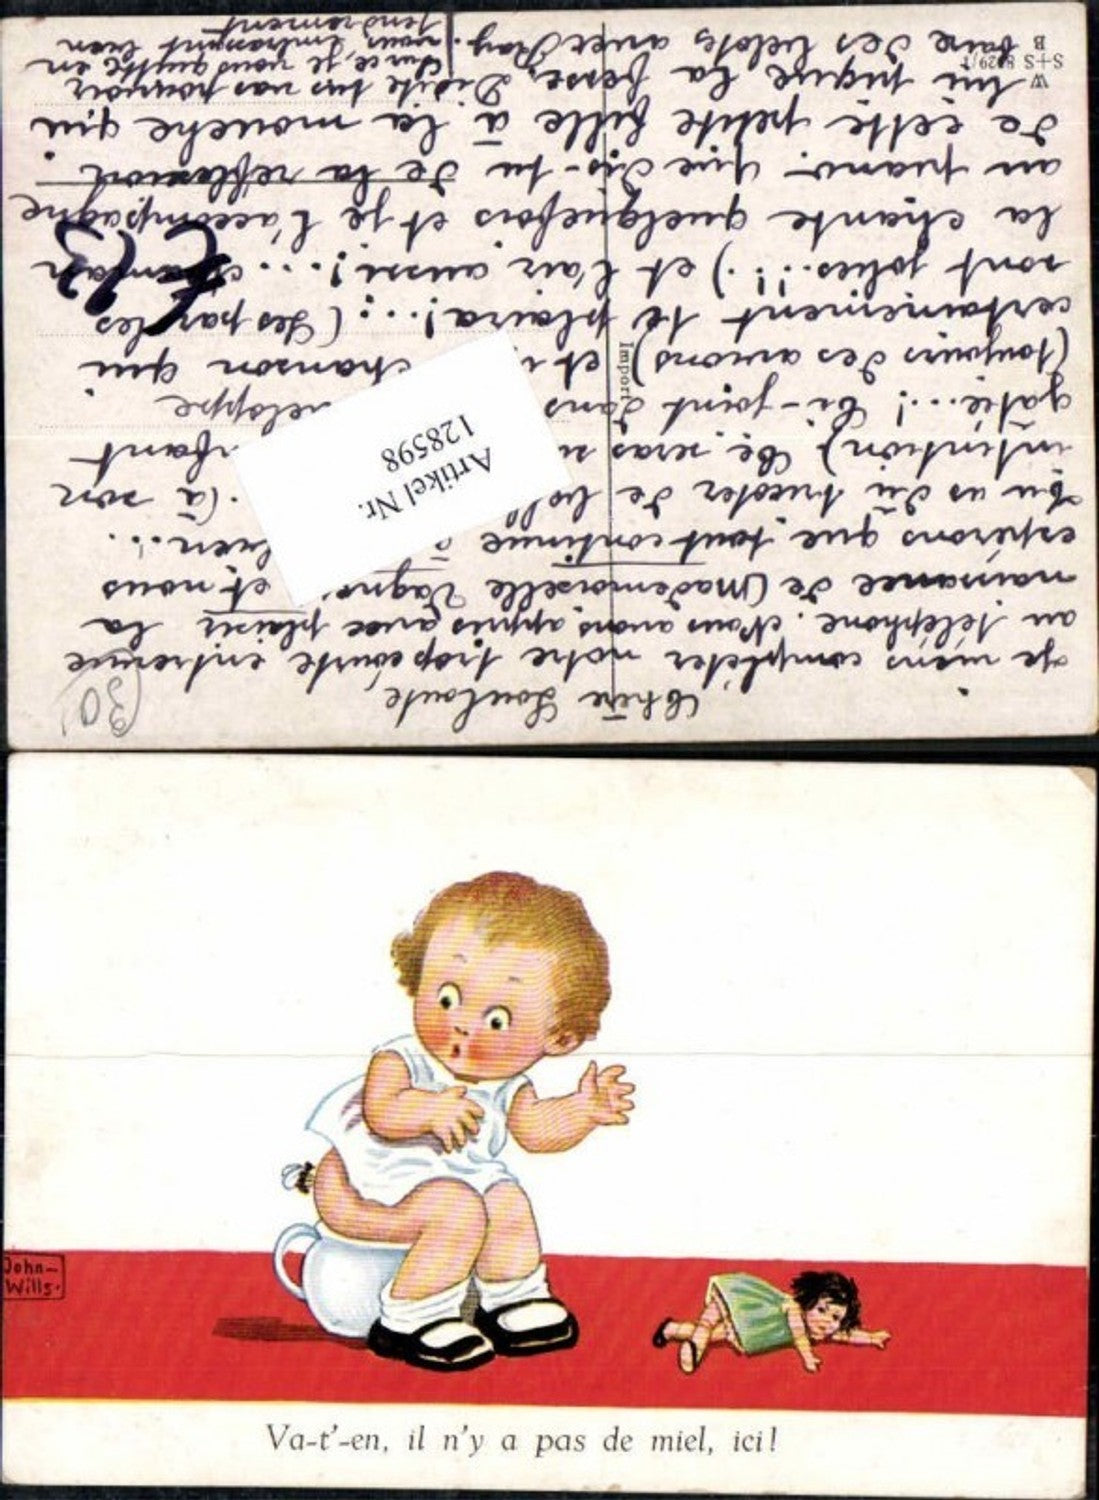 Chère Louloute
Je viens compléter notre trop courte entrevue
au téléphone. Nous avons appris avec plaisir la
naissance de Mademoiselle et nous
espérons que tout continue bien...
Tu as dû tricoter de (à son
intention) Ce seras
gâté...! Ci-joint dans
(toujours des avions) et chanson qui
certainement te plaira...! (Les paroles
sont jolies..!!) et l'air aussi!... maman
la chante quelquefois et je l'accompagne
au piano. Que dis-tu de la reflexion
de cette petite fille à la mouche qui
lui pique la fesse. Dédé te fais pas pouvoir
faire des belotes avec Jay.
Sur ce, je vous quitte en
vous embrassant bien
tendrement
Import
W
S+S 8029/1
B
Artikel Nr.
128598
€ 13
(30
John-
Wills.
Va-t'-en, il n'y a pas de miel, ici!